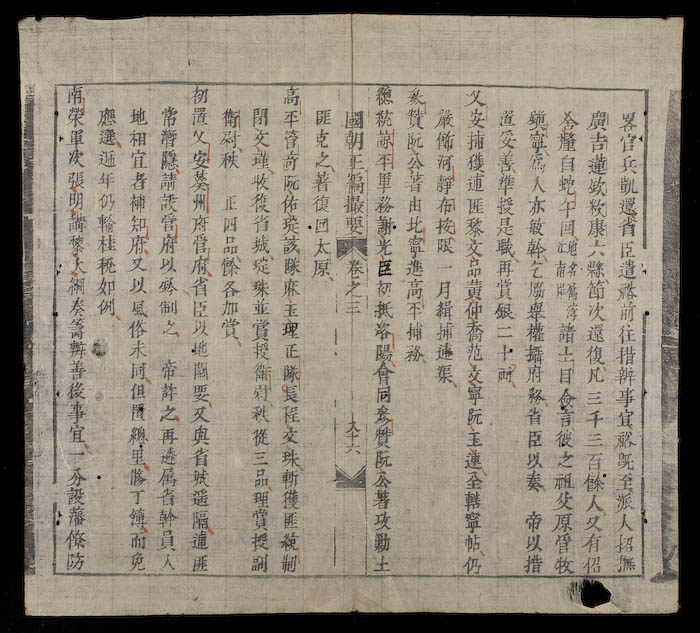 畧官兵凱還省臣遣裕前往措辦事宜裕旣至派人招撫
廣吉蓮敦康六縣節次還復凡三千三百餘人又有佋
舍釐白蛇午回地名屬諸土目僉言彼之祖父原管牧
鎮寧爲人亦敏幹乞協舉權攝府務省臣以奏 帝以措
置妥善準授是職再賞銀二十兩
乂安捕獲逋匪黎文品黃仲喬范文寧阮玉連全轄寧帖仍
嚴飭河靜布按限一月緝捕逋渠
叅贊阮公著由北寧進高平捕務
總統諒平軍務謝光巨初抵洛陽會同叅贊阮公著攻勦土
國朝正編撮要 卷之三 九十六
匪克之著復回太原
高平管奇阮佑琔該隊麻玉理正隊長程文珠斬獲匪統制
閉文瑾收復省城琔珠並賞授衛尉秩從三品理賞授副
衛尉秩 正四品餘各加賞
初置乂安葵州府管府省臣以地關要又與省城遥隔逋匪
常潛隱請設管府以制之 帝許之再遴屬省幹員人
地相宜者補知府又以風俗未同但置總里修丁簿而免
應選遞年仍輸桂稅如例
南榮軍次張明講黎大綱奏籌辦善後事宜一分設藩僚防